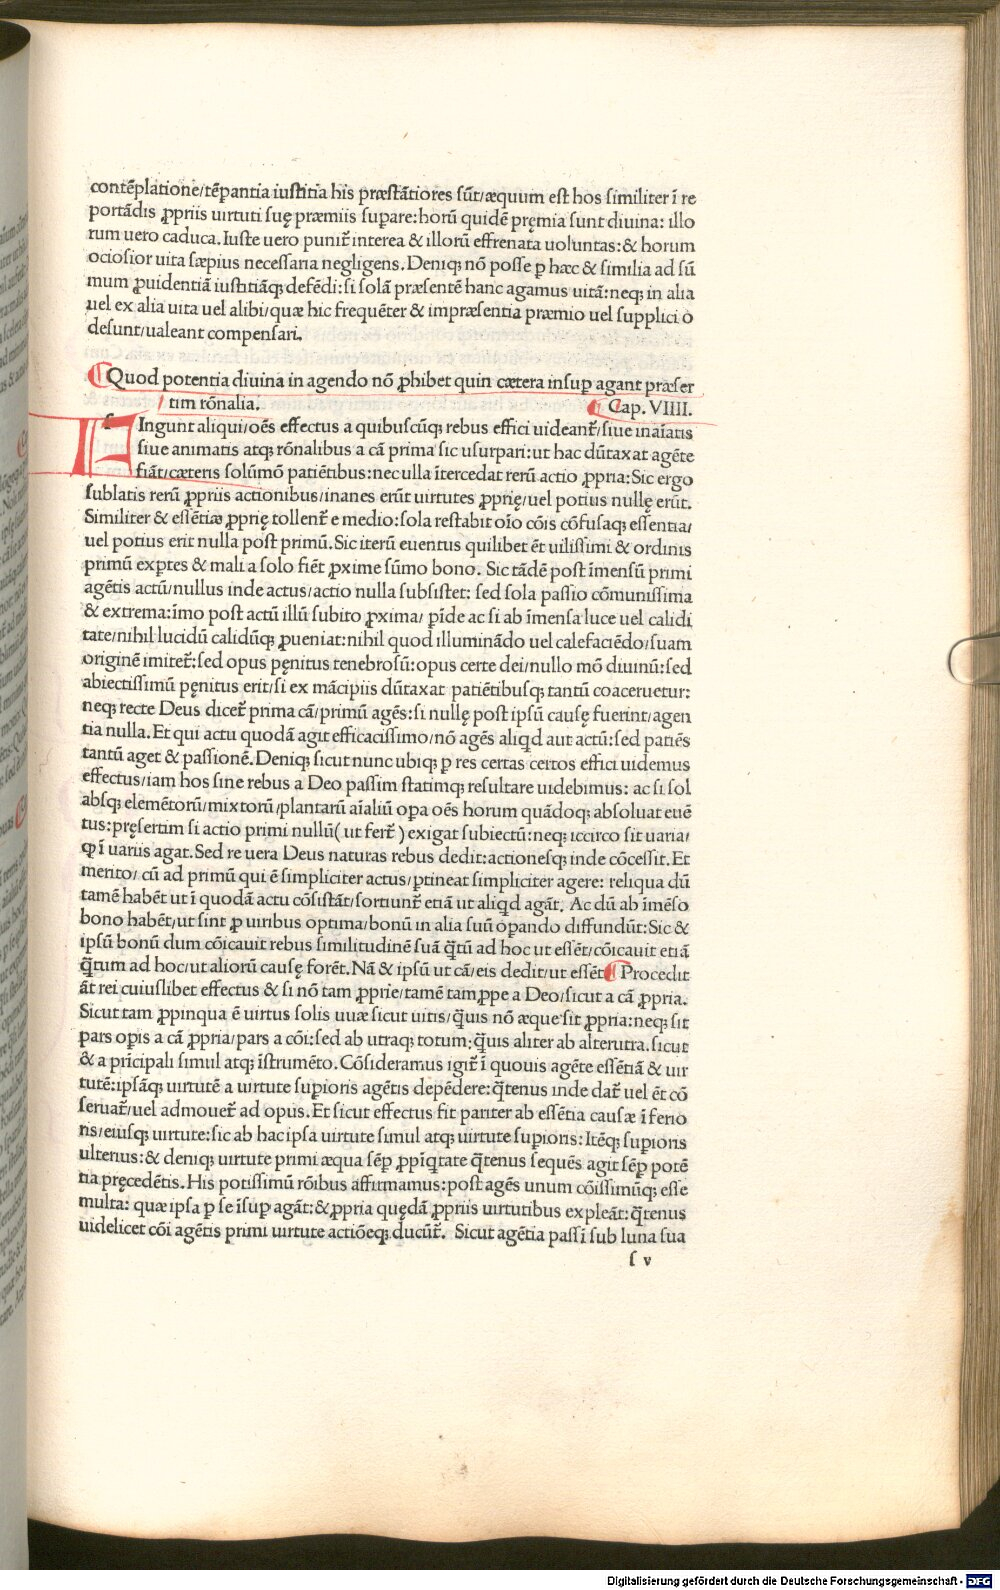 contẽplatione/tẽpantia iustitia his præstãtiores sũt/æquum est hos similiter ĩ re
portãdis ꝓpriis uirtuti suę præmiis supare:horũ quidẽ pręmia sunt diuina: illo
rum uero caduca. Iuste uero punit̃ interea & illorũ effrenata uoluntas:& horum
ociosior uita sæpius necessaria negligens. Deniqꝫ nõ posse ꝑ hæc & similia ad sũ
mum ꝓuidentiã iustitiãqꝫ defẽdi:si solã præsentẽ hanc agamus uitã:neqꝫ in alia
uel ex alia uita uel alibi/quæ hic frequẽter & impræsentia præmio uel supplici o
desunt/ualeant compensari.
Quod potentia diuina in agendo nõ ꝓhibet quin cætera insuꝑ agant præser
tim rõnalia. Cap. VIIII.
f Ingunt aliqui/oẽs effectus a quibuscũqꝫ rebus effici uideant̃/siue inaĩatis
siue animatis atqꝫ rõnalibus a cã prima sic usurpari:ut hac dũtaxat agẽte
fiãt/cæteris solũmõ patiẽtibus:nec ulla ĩtercedat rerũ actio ꝓpria:Sic ergo
sublatis rerũ ꝓpriis actionibus/inanes erũt uirtutes ꝓprię/uel potius nullę erũt.
Similiter & essẽtiæ ꝓprię tollent̃ e medio:sola restabit oĩo cõis cõfusaqꝫ essentia/
uel potius erit nulla post primũ. Sic iterũ euentus quilibet ẽt uilissimi & ordinis
primũ exꝑtes & mali a solo fiẽt ꝓxime sũmo bono. Sic tãdẽ post ĩmensũ primi
agẽtis actũ/nullus inde actus/actio nulla subsistet: sed sola passio cõmunissima
& extrema:ĩmo post actũ illũ subito ꝓxima/ ꝑĩde ac si ab ĩmensa luce uel calidi
tate/nihil lucidũ calidũqꝫ ꝓueniat:nihil quod illuminãdo uel calefaciẽdo/suam
originẽ imitet̃:sed opus pęnitus tenebrosũ:opus certe dei/nullo mõ diuinũ:sed
abiectissimũ pęnitus erit/si ex mãcipiis dũtaxat patiẽtibusqꝫ tantũ coaceruetur:
neqꝫ recte Deus dicet̃ prima cã/primũ agẽs:si nullę post ipsũ causę fuerint/agen
tia nulla. Et qui actu quodã agit efficacissimo/nõ agẽs aliqd aut actũ:sed patiẽs
tantũ aget & passionẽ. Deniqꝫ sicut nunc ubiqꝫ ꝑ res certas certos effici uidemus
effectus/iam hos sine rebus a Deo passim statimqꝫ resultare uidebimus: ac si sol
absqꝫ elemẽtorũ/mixtorũ/plantarũ aĩaliũ opa oẽs horum quãdoqꝫ absoluat euẽ
tus:pręsertim si actio primi nullũ( ut fert̃ ) exigat subiectũ:neqꝫ iccirco sit uaria/
ꝙ ĩ uariis agat. Sed re uera Deus naturas rebus dedit:actionesqꝫ inde cõcessit. Et
merito/ cũ ad primũ qui ẽ simpliciter actus/ꝑtineat simpliciter agere: reliqua dũ
tamẽ habẽt ut ĩ quodã actu cõsistãt/sortiunt̃ etiã ut aliqd agãt. Ac dũ ab ĩmẽso
bono habẽt/ut sint ꝓ uiribus optima/bonũ in alia suũ opando diffundũt:Sic &
ipsũ bonũ dum cõicauit rebus similitudinẽ suã q̃tũ ad hoc ut essẽt/cõicauit etiã
q̃tum ad hoc/ut aliorũ causę forẽt. Nã & ipsũ ut cã/eis dedit/ut essẽt Procedit
ãt rei cuiuslibet effectus & si nõ tam ꝓprie/tamẽ tam ꝓpe a Deo/sicut a cã ꝓpria.
Sicut tam ꝓpinqua ẽ uirtus solis uuæ sicut uitis/q̃uis nõ æque sit ꝓpria:neqꝫ sit
pars opis a cã ꝓpria/pars a cõi:sed ab utraqꝫ totum:q̃uis aliter ab alterutra. sicut
& a prĩcipali simul atqꝫ ĩstrumẽto. Cõsideramus igit̃ ĩ quouis agẽte essẽtiã & uir
tutẽ:ipsãqꝫ uirtutẽ a uirtute supioris agẽtis depẽdere:q̃tenus inde dat̃ uel ẽt cõ
seruat̃/uel admouet̃ ad opus. Et sicut effectus fit pariter ab essẽtia causæ ĩferio
ris/eiusqꝫ uirtute:sic ab hac ipsa uirtute simul atqꝫ uirtute supioris: Itẽqꝫ supioris
ulterius:& deniqꝫ uirtute primi æqua sẽꝑ ꝓpĩq̃tate q̃tenus sequẽs agit sẽꝑ potẽ
tia pręcedẽtis. His potissimũ rõibus affirmamus:post agẽs unum cõissimũqꝫ esse
multa: quæ ipsa ꝑ se ĩsuꝑ agãt:& ꝓpria quędã ꝓpriis uirtutibus expleãt:q̃tenus
uidelicet cõi agẽtis primi uirtute actiõeqꝫ ducũt̃. Sicut agẽtia passĩ sub luna sua
f v
Digitalisierung gefördert durch die Deutsche Forschungsgemeinschaft - DFG